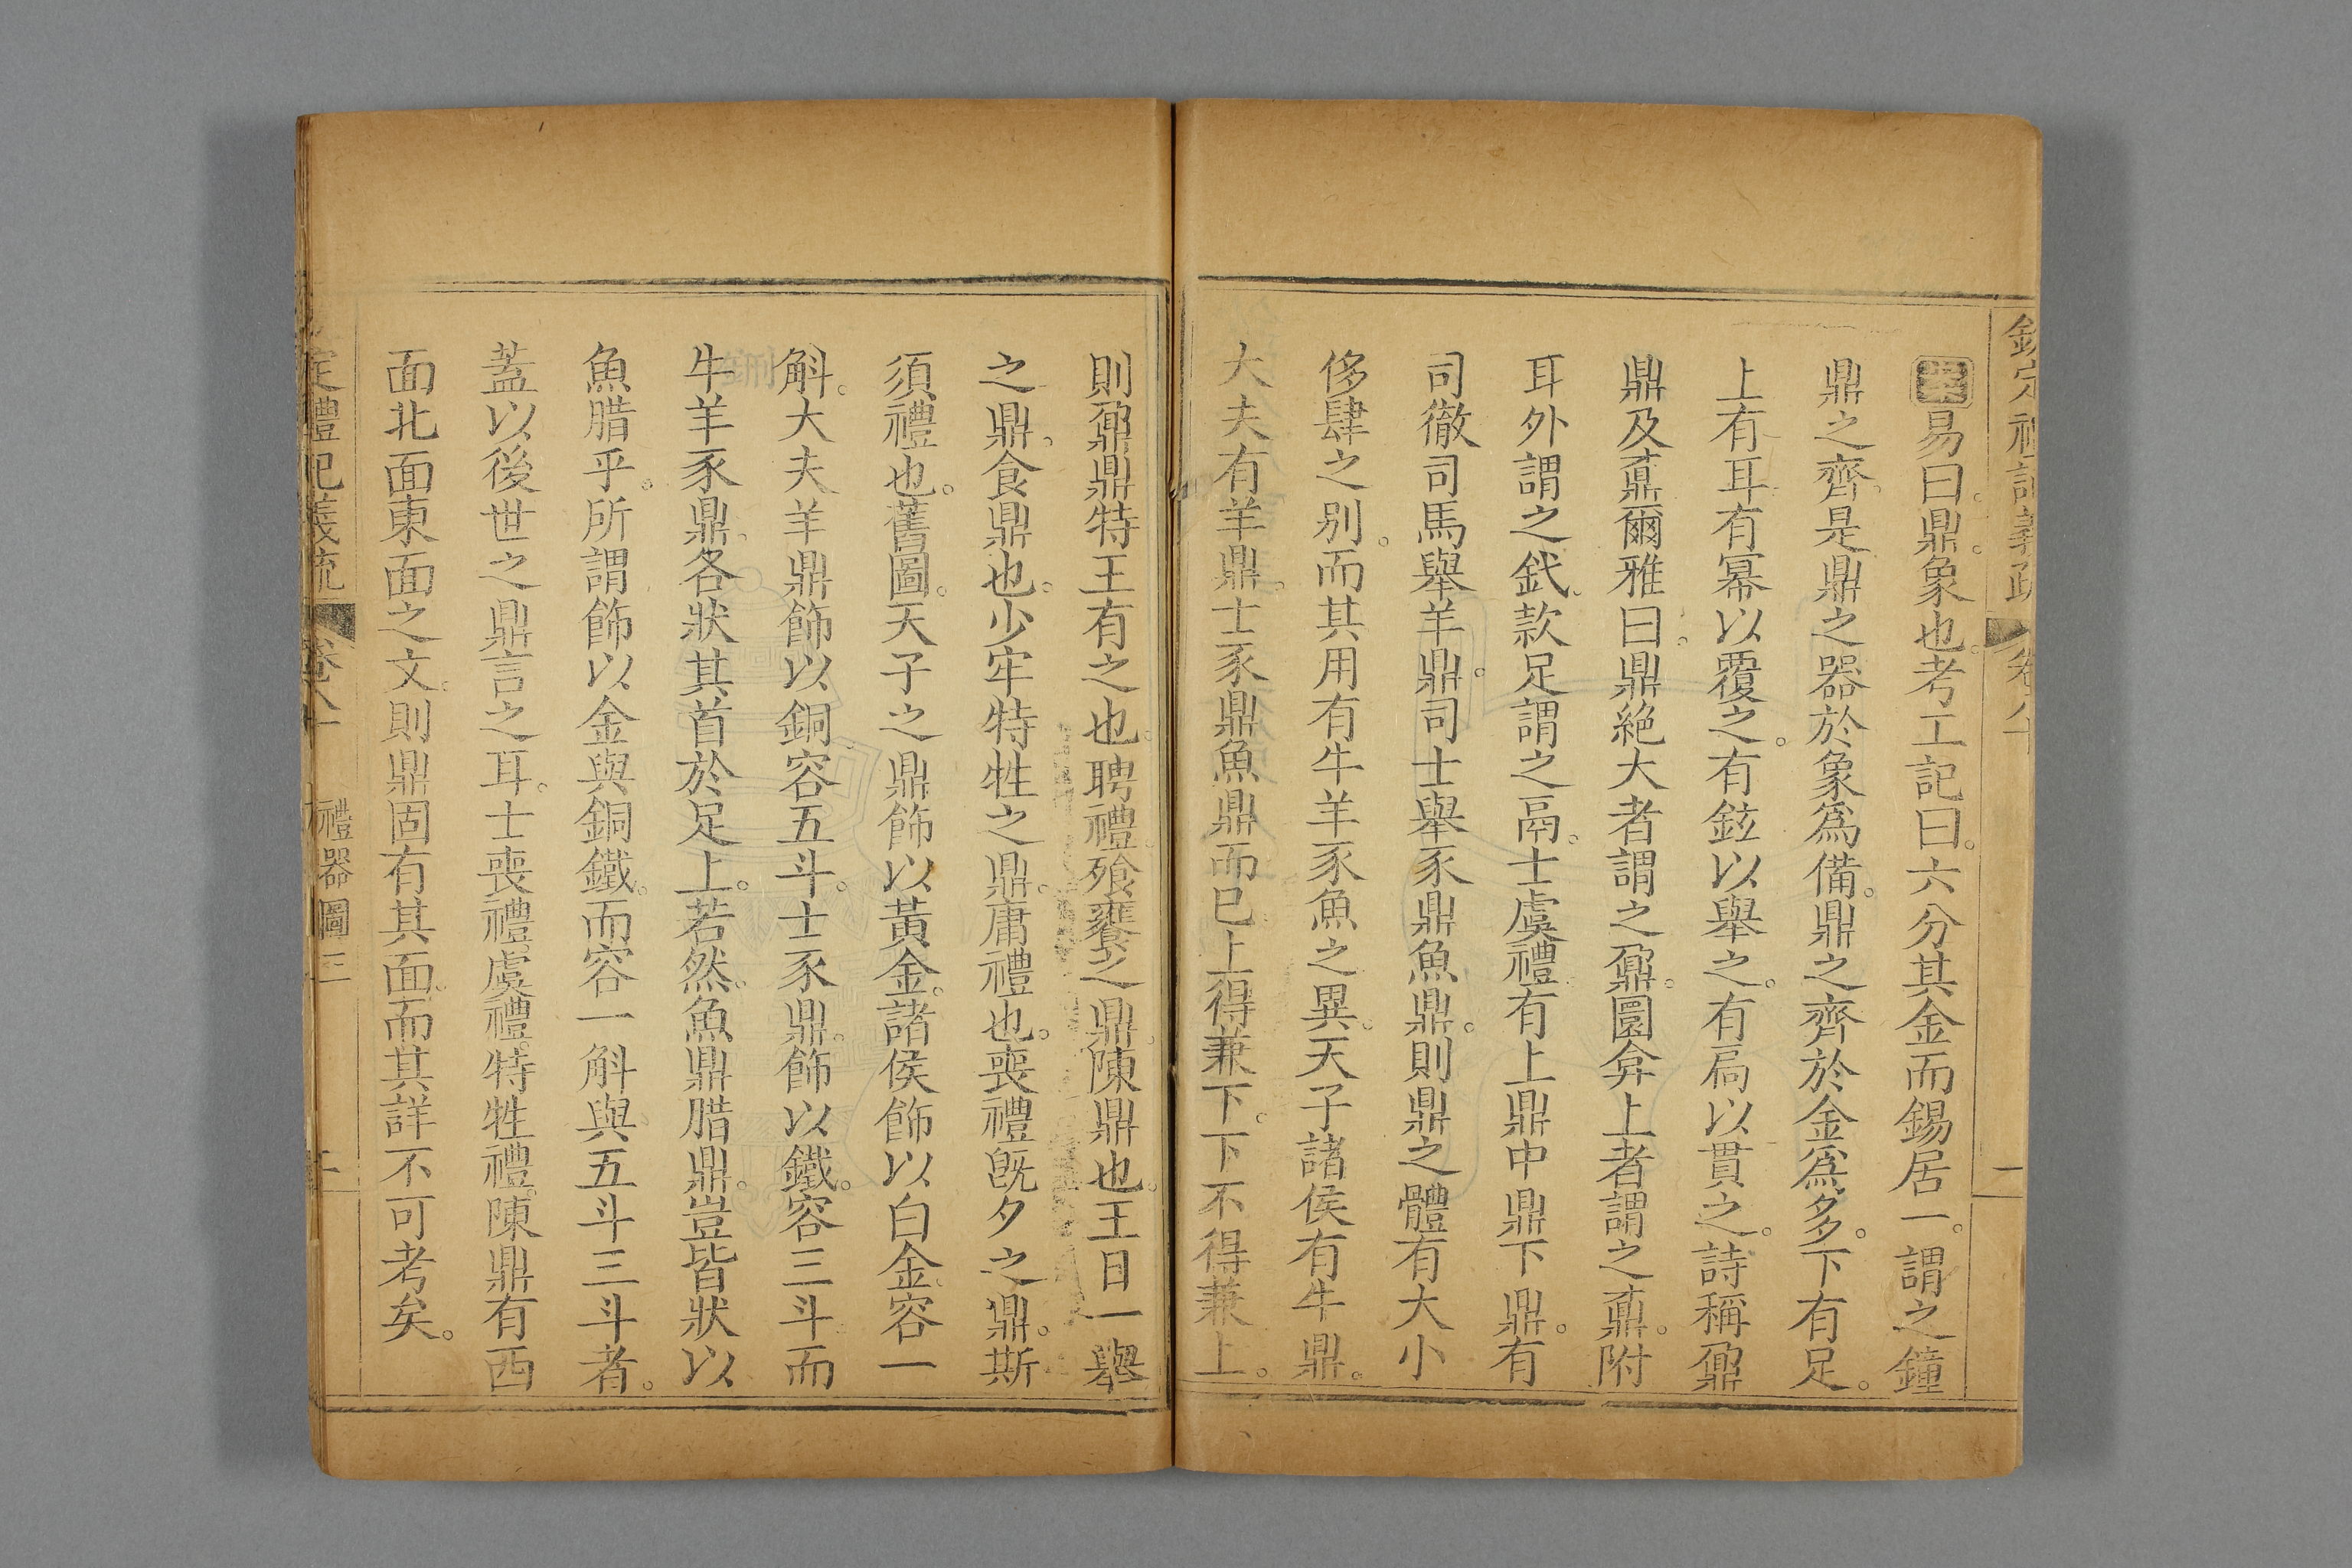 欽定禮記義疏 卷八十 一
易曰。鼎。象也。考工記曰。六分其金而錫居一。謂之鐘
鼎之齊。是鼎之器於象爲備。鼎之齊於金爲多。下有足。
上有耳。有冪以覆之。有鉉以舉之。有扃以貫之。詩稱鼐
鼎及鼒。爾雅曰。鼎絶大者謂之鼐。圜弇上者謂之鼒。附
耳外謂之釴。款足謂之鬲。士虞禮有上鼎中鼎下鼎。有
司徹司馬舉羊鼎。司士舉豕鼎魚鼎。則鼎之體有大小
侈肆之别。而其用有牛羊豕魚之異。天子諸侯有牛鼎。
大夫有羊鼎。士豕鼎魚鼎而已。上得兼下。下不得兼上。
則鼐鼎特王有之也。聘禮飱饔之鼎。陳鼎也。王日一舉
之鼎。食鼎也。少牢特牲之鼎。庸禮也。喪禮旣夕之鼎。斯
須禮也。舊圖。天子之鼎飾以黃金。諸侯飾以白金。容一
斛。大夫羊鼎飾以銅。容五斗。士豕鼎。飾以鐵。容三斗。而
牛羊豕鼎。各狀其首於足上。若然。魚鼎腊鼎。豈皆狀以
魚腊乎。所謂飾以金與銅鐵。而容一斛與五斗三斗者。
蓋以後世之鼎言之耳。士喪禮。虞禮。特牲禮。陳鼎有西
面北面東面之文。則鼎固有其面。而其詳不可考矣。
定禮記義疏 卷八十 禮器圖三